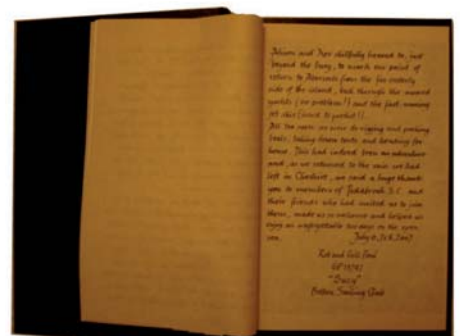 Alison and Dave skilfully hove to, just
beyond the buoy, to mark our point of
return to Abersoch from the far easterly
side of the island, back through the moored
yachts (no problem!!) and the fast running
jet skis (scary to yachts!!).
All too soon we were de-rigging and packing
boats, taking down tents and heading for
home. This had indeed been an adventure
and, as we returned to the rain we had
left in Cheshire, we said a huge thank
you to members of Toddbrook S.C. and
their friends who had invited us to join
them, made us so welcome and helped us
enjoy an unforgettable two days on the open
sea. July
Rob and
GP
"
Sailing Club